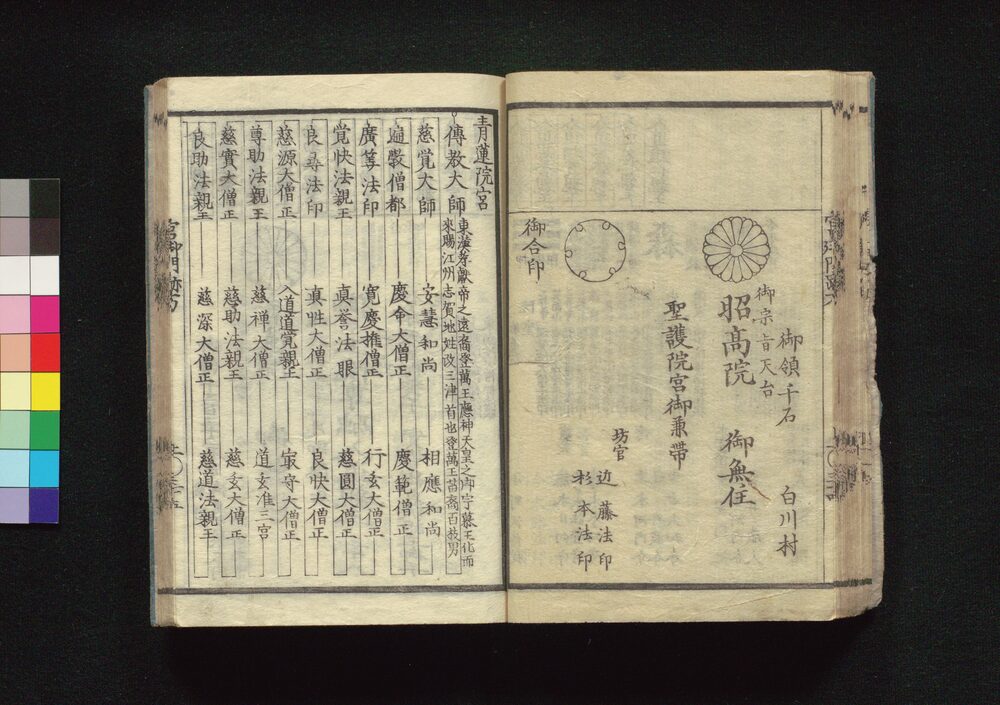 御領千石　白川村
御宗旨天台
昭高院　御無住
聖護院宮御兼帯
坊官
近藤法印
杉本法印
御合印
青蓮院宮
傳教大師
東漢孝獻帝之遠裔登萬王應神天皇之御宇慕王化而
來賜江州志賀地姓改三津首也登萬王苗裔百枝男
慈覺大師　安慧和尚　相應和尚
遍斅僧都　慶命大僧正　慶範僧正
廣筭法印　寛慶権僧正　行玄大僧正
覚快法親王　真誉法眼　慈圓大僧正
良尋法印　真性大僧正　良快大僧正
慈源大僧正　入道道覚親王　最守大僧正
尊助法親王　慈禅大僧正　道玄准三宮
慈實大僧正　慈助法親王　慈玄大僧正
良助法親王　慈深大僧正　慈道法親王
宮御門跡方